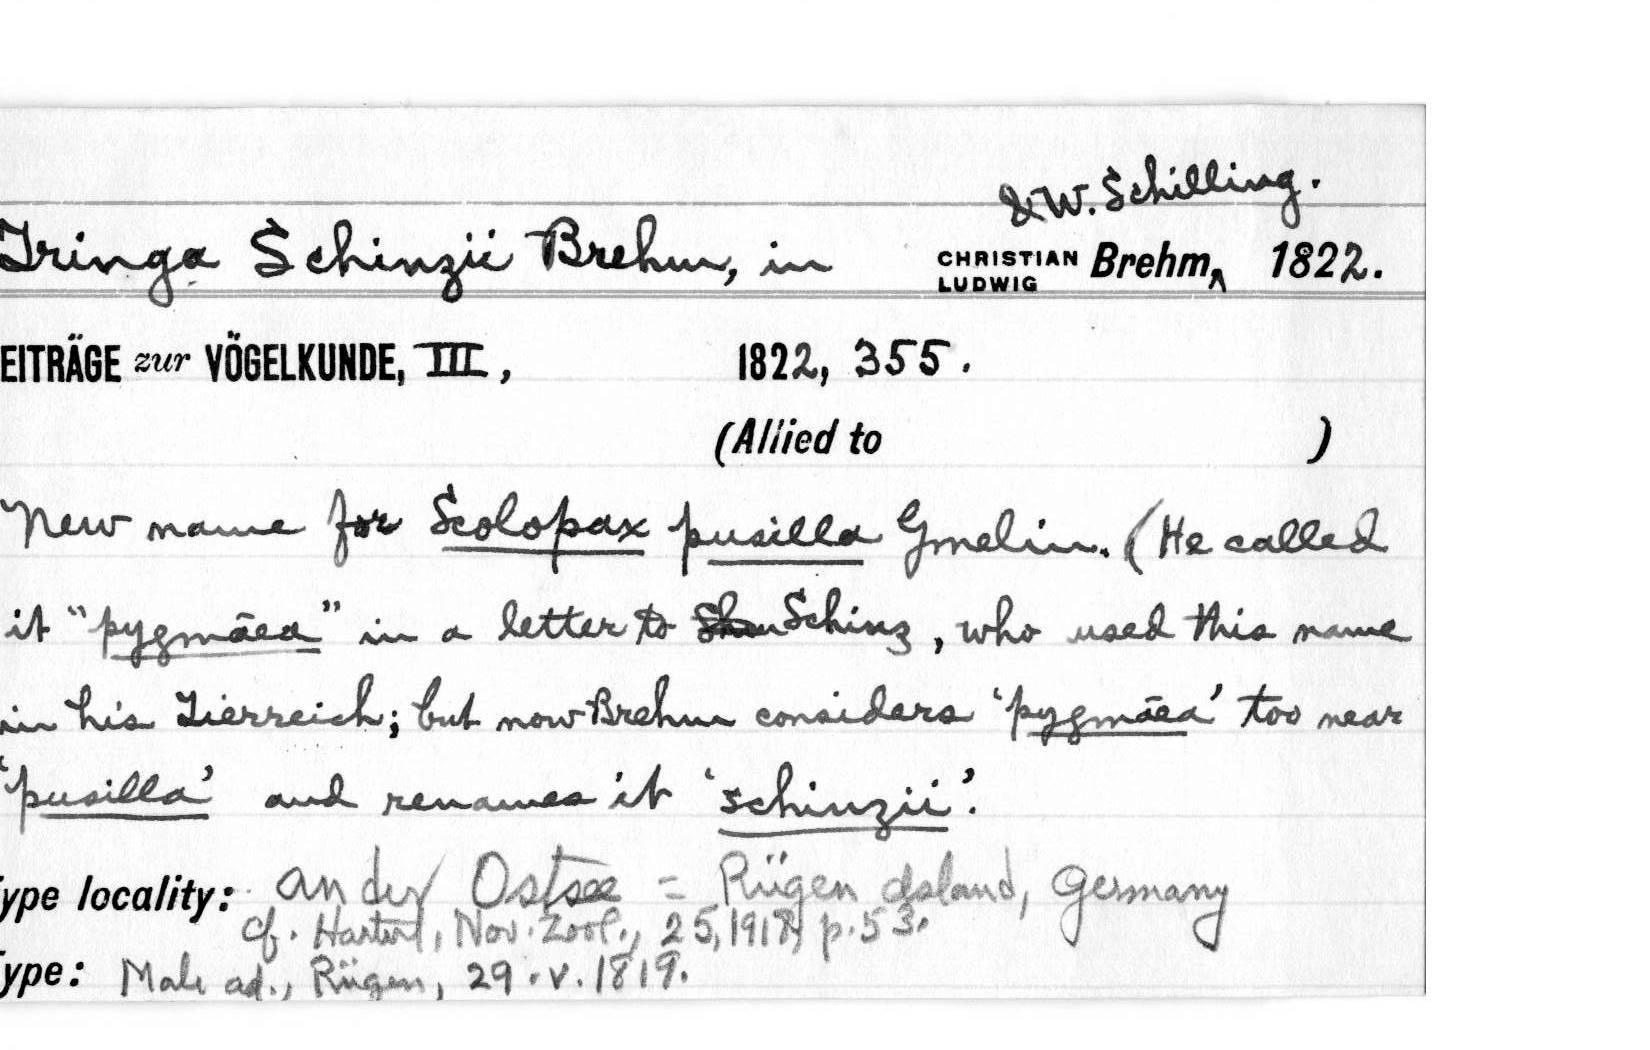 & W. Schilling.
Tringa Schinzii Brehm, in CHRISTIAN LUDWIG Brehm, 1822.
EITRÄGE zur VÖGELKUNDE, III, 1822, 355.
(Allied to )
New name for Scolopax pusilla Gmelin. (He called
it "pygmäea" in a letter to Schinz, who used this name
in his Tierreich; but now Brehm considers 'pygmäea' too near
'pusilla' and renames it 'schinzii'.
ype locality: an der Ostsee = Rügen Island, Germany
cf. Hartert, Nov. Zool., 25, 1918, p. 53.
ype: Male ad., Rügen, 29.v.1819.